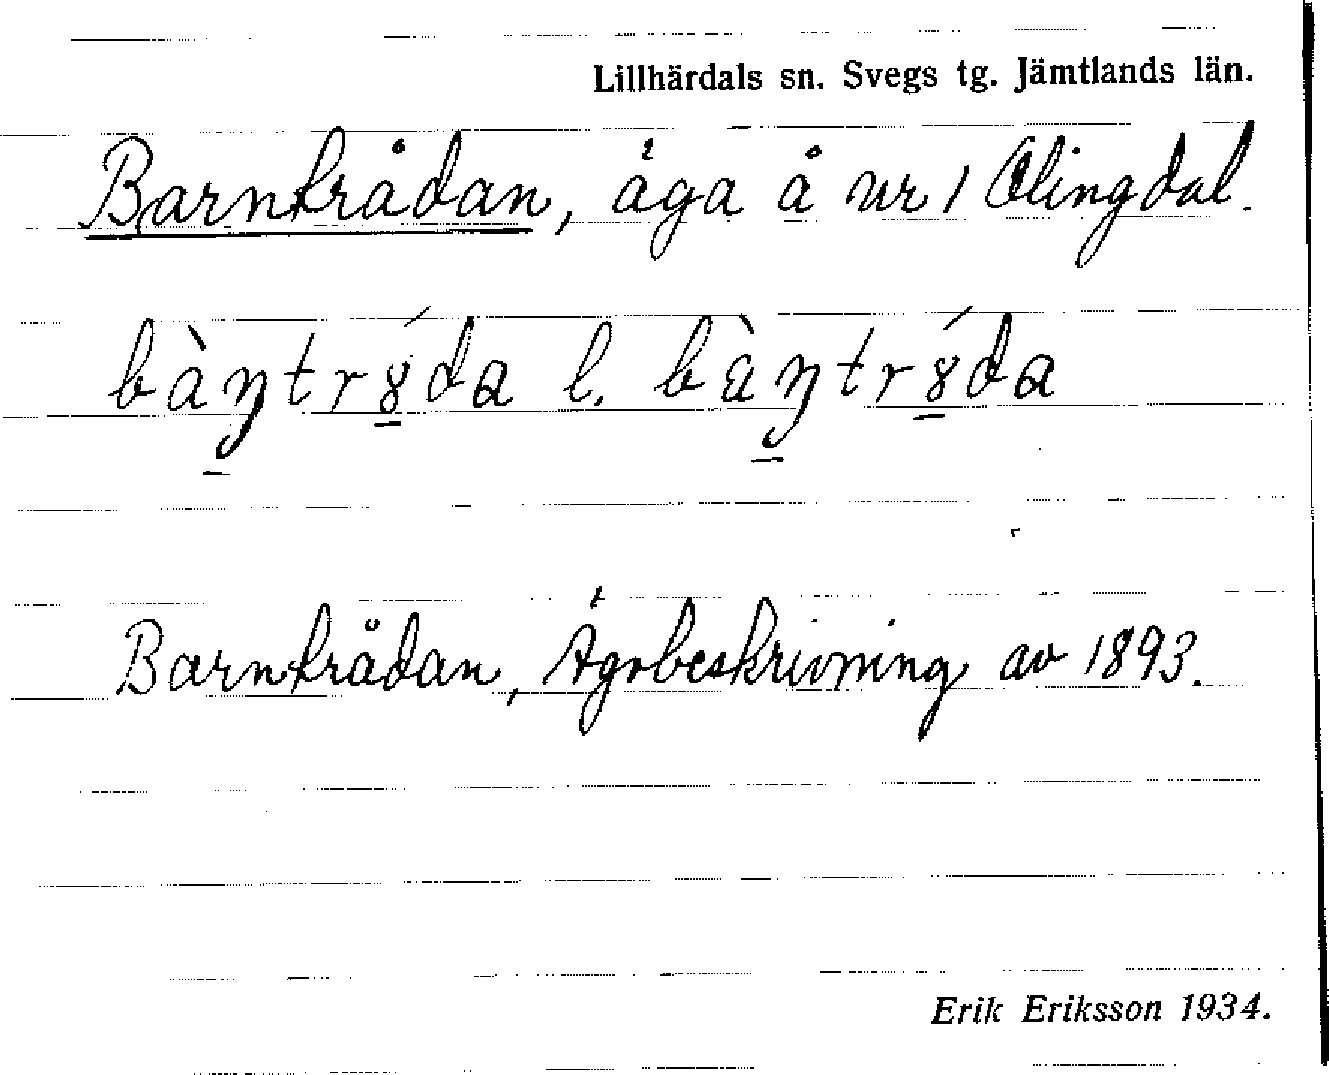 Lillhärdals sn. Svegs tg. Jämtlands län.
Barntrådan, äga å nr 1 Olingdal.
bàn̠trɣ̠́da l. bàn̠trɣ̠́da
Barntrådan, Ägobeskrivning av 1893.
Erik Eriksson 1934.